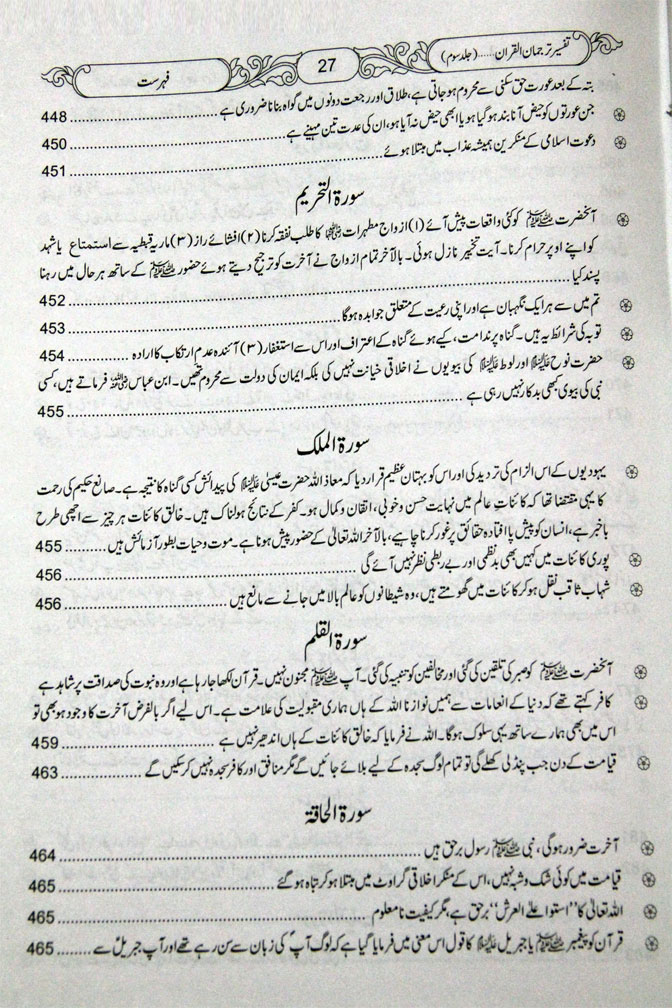 تفسیر ترجمان القرآن.....(جلد سوم)
27
فہرست
بتہ کے بعد عورت حق سکنی سے محروم ہو جاتی ہے، طلاق اور رجعت دونوں میں گواہ بنانا ضروری ہے
جن عورتوں کو حیض آنا بند ہو گیا ہو یا ابھی حیض نہ آیا ہو، ان کی عدت تین مہینے ہے 448
دعوت اسلامی کے منکرین ہمیشہ عذاب میں مبتلا ہوئے 450
451
سورۃ التحریم
آنحضرت ﷺ کو کئی واقعات پیش آئے (۱) ازواج مطہرات رضی اللہ عنہن کا طلب نفقہ کرنا (۲) افشائے راز (۳) ماریہ قبطیہ سے استمتاع یا شہد
کو اپنے اوپر حرام کرنا۔ آیت تخییر نازل ہوئی۔ بالآخر تمام ازواج نے آخرت کو ترجیح دیتے ہوئے حضور ﷺ کے ساتھ ہر حال میں رہنا
پسند کیا 452
تم میں سے ہر ایک نگہبان ہے اور اپنی رعیت کے متعلق جوابدہ ہوگا 453
توبہ کی شرائط یہ ہیں۔ گناہ پر ندامت، کیے ہوئے گناہ کے اعتراف اور اس سے استغفار (۳) آئندہ عدم ارتکاب کا ارادہ 454
حضرت نوح علیہ السلام اور لوط علیہ السلام کی بیویوں نے اخلاقی خیانت نہیں کی بلکہ ایمان کی دولت سے محروم تھیں۔ ابن عباس رضی اللہ عنہ فرماتے ہیں، کسی
نبی کی بیوی کبھی بدکار نہیں رہی ہے 455
سورۃ الملک
یہودیوں کے اس الزام کی تردید کی اور اس کو بہتان عظیم قرار دیا کہ معاذ اللہ حضرت عیسیٰ علیہ السلام کی پیدائش کسی گناہ کا نتیجہ ہے۔ صانع حکیم کی رحمت
کا یہی مقتضا تھا کہ کائنات عالم میں نہایت حسن و خوبی، اتقان و کمال ہو۔ کفر کے نتائج ہولناک ہیں۔ خالق کائنات ہر چیز سے اچھی طرح
باخبر ہے، انسان کو پیش پا افتادہ حقائق پر غور کرنا چاہیے، بالآخر اللہ تعالیٰ کے حضور پیش ہونا ہے۔ موت و حیات بطور آزمائش ہیں 455
پوری کائنات میں کہیں بھی بد نظمی اور بے ربطی نظر نہیں آئے گی 456
شہاب ثاقب نقل ہو کر کائنات میں گھومتے ہیں، وہ شیطانوں کو عالم بالا میں جانے سے مانع ہیں 456
سورۃ القلم
آنحضرت ﷺ کو صبر کی تلقین کی گئی اور مخالفین کو تنبیہ کی گئی۔ آپ ﷺ مجنون نہیں۔ قرآن لکھا جا رہا ہے اور وہ نبوت کی صداقت پر شاہد ہے
کافر کہتے تھے کہ دنیا کے انعامات سے ہمیں نوازنا اللہ کے ہاں ہماری مقبولیت کی علامت ہے۔ اس لیے اگر بالفرض آخرت کا وجود ہو بھی تو
اس میں بھی ہمارے ساتھ یہی سلوک ہوگا۔ اللہ نے فرمایا کہ خالق کائنات کے ہاں اندھیر نہیں ہے 459
قیامت کے دن جب پنڈلی کھلے گی تو تمام لوگ سجدہ کے لیے بلائے جائیں گے مگر منافق اور کافر سجدہ نہیں کر سکیں گے 463
سورۃ الحاقۃ
آخرت ضرور ہوگی، نبی ﷺ رسول برحق ہیں 464
قیامت میں کوئی شک و شبہ نہیں، اس کے منکر اخلاقی گراوٹ میں مبتلا ہو کر تباہ ہو گئے 465
اللہ تعالیٰ کا "استواء علی العرش" برحق ہے، مگر کیفیت نامعلوم 465
قرآن کو پیغمبر ﷺ یا جبریل علیہ السلام کا قول اس معنی میں فرمایا گیا ہے کہ لوگ آپ کی زبان سے سن رہے تھے اور آپ جبریل سے 465